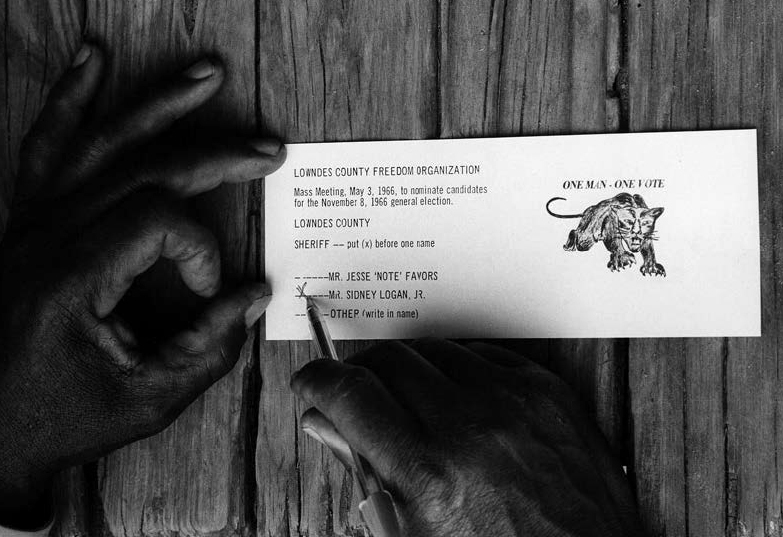 LOWNDES COUNTY FREEDOM ORGANIZATION
Mass Meeting, May 3, 1966, to nominate candidates
for the November 8, 1966 general election.
LOWNDES COUNTY
SHERIFF -- put (x) before one name
------MR. JESSE 'NOTE' FAVORS
--x---MR. SIDNEY LOGAN, JR.
------OTHER (write in name)
ONE MAN - ONE VOTE